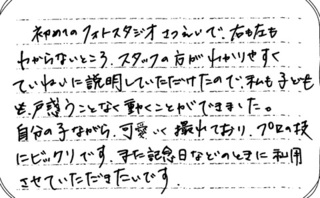 初めてのフォトスタジオさつえいで、右も左も
わからないところ、スタッフの方がわかりやすく
ていねいに説明していただけたので、私も子ども
も、戸惑うことなく動くことができました。
自分の子ながら、可愛いく撮れており、プロの技
にビックリです。また記念日などのときに利用
させていただきたいです。